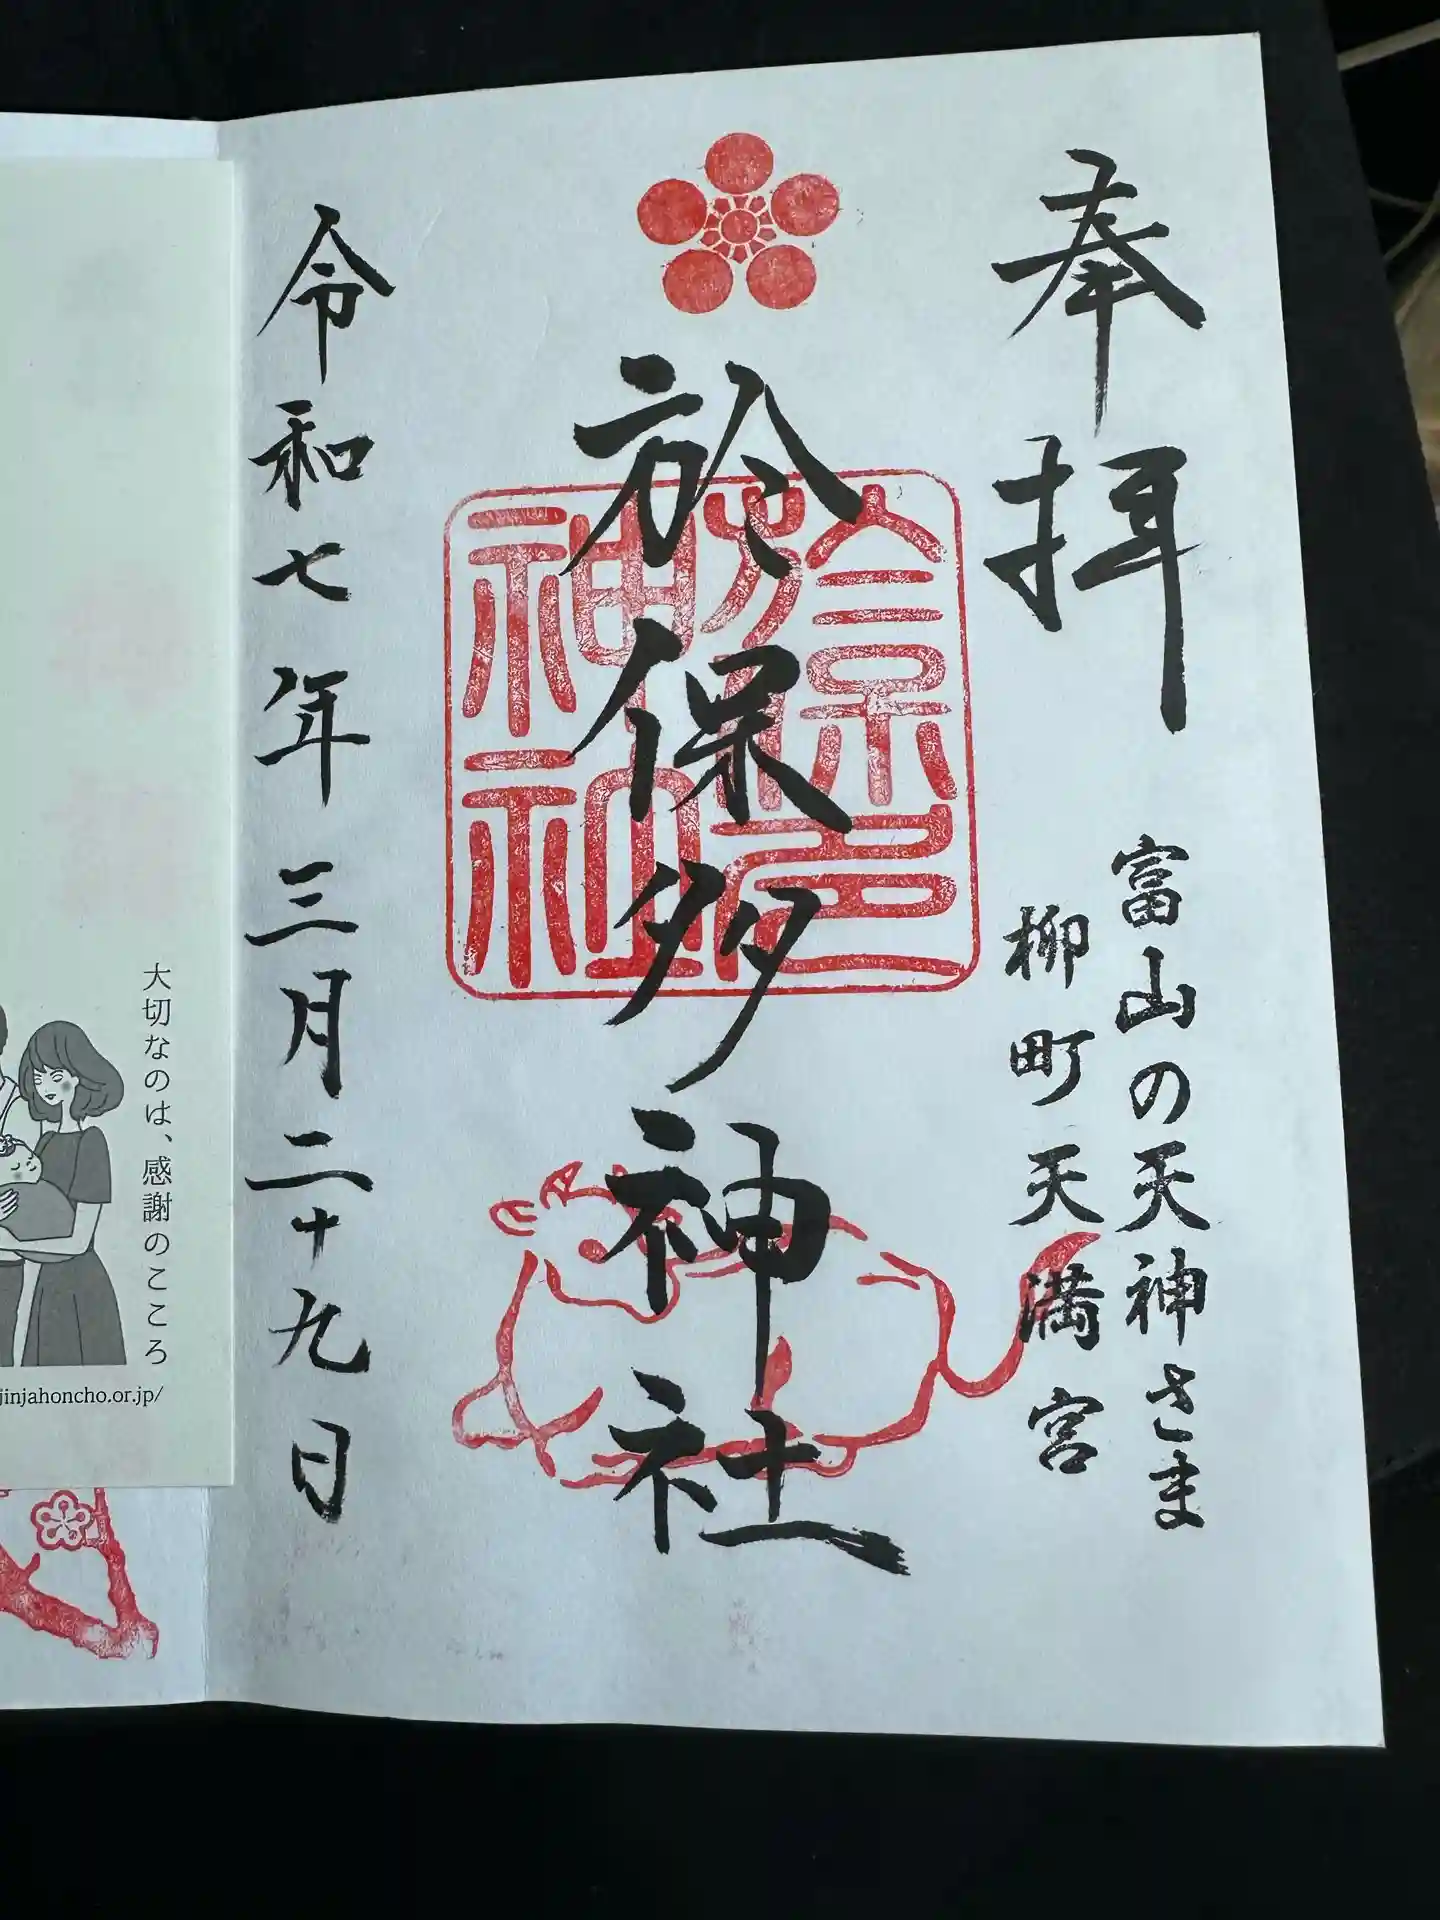 奉拝
富山の天神さま
柳町天満宮
於保多神社
於保多神社
令和七年三月二十九日
大切なのは、感謝のこころ
jinjahoncho.or.jp/